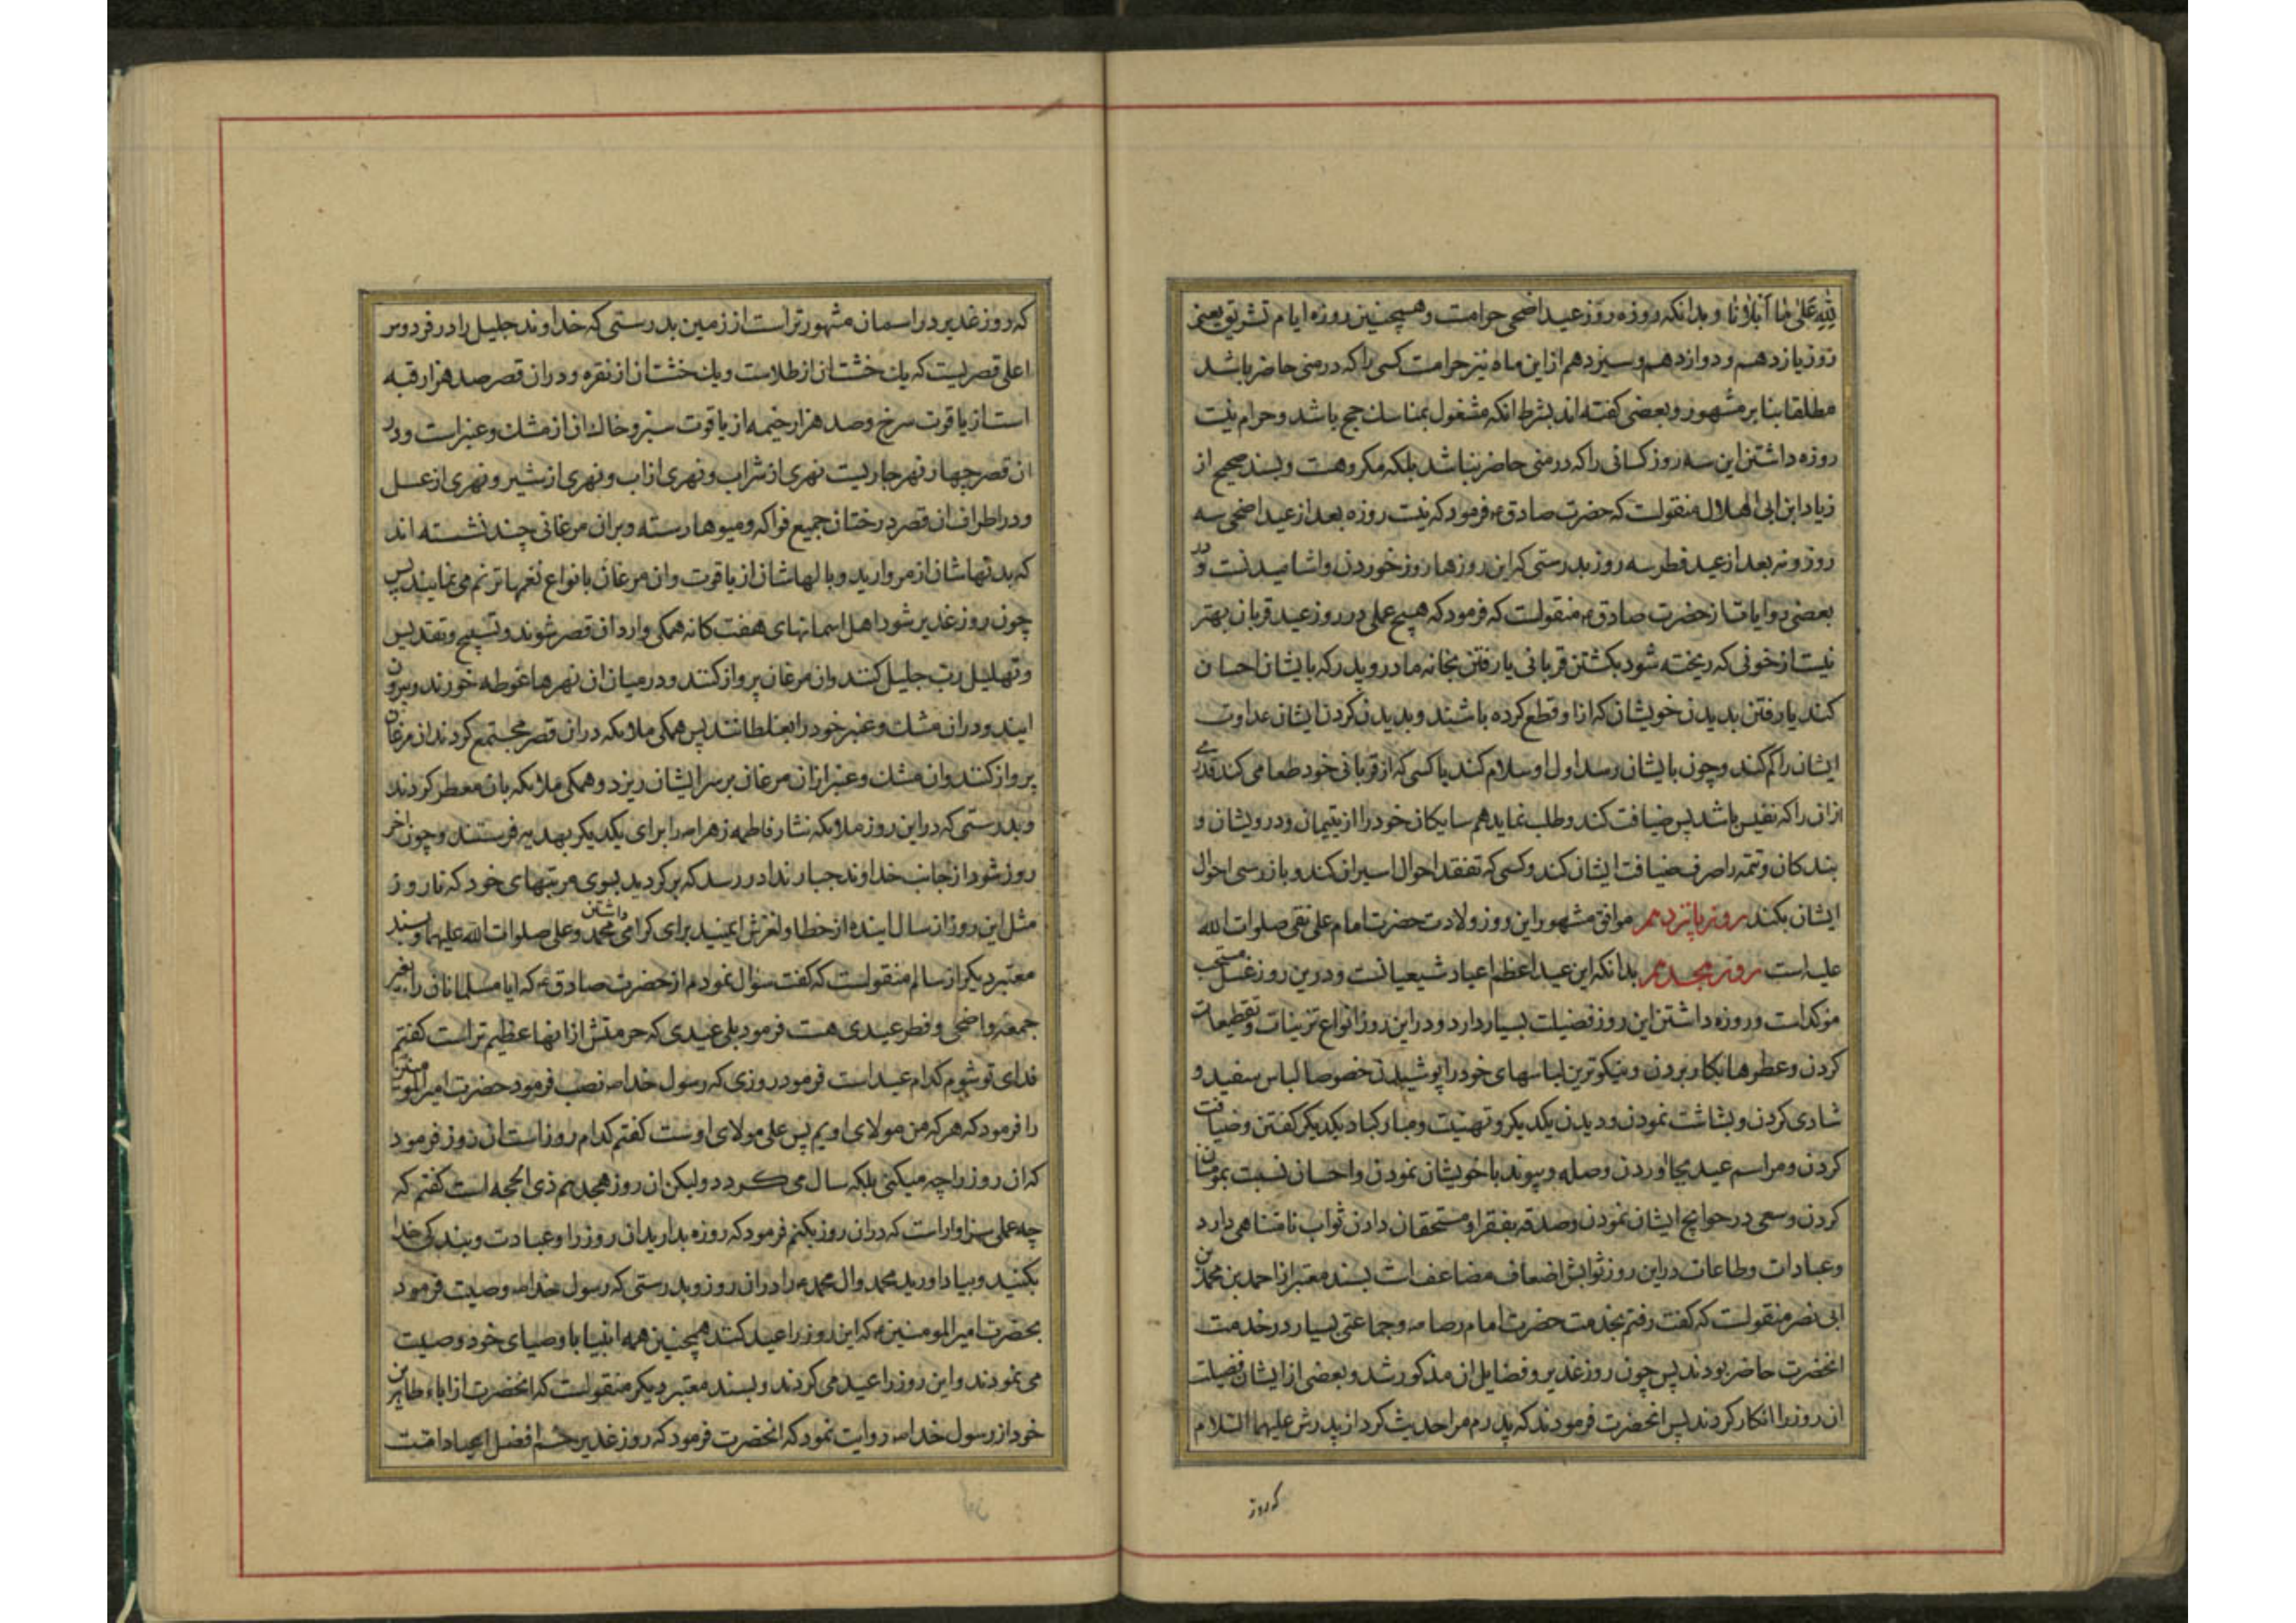 لِلّٰهِ عَلیٰ مٰا اَبْلاٰنٰا و بدانکه روزه روز عید اضحی حرامست و همچنین روزه ایام تشریق یعنی
روز یازدهم و دوازدهم و سیزدهم از این ماه نیز حرامست کسی را که در منی حاضر باشد
مطلقا بنا بر مشهور و بعضی کفته اند بشرط انکه مشغول بمناسك حج باشد و حرام نیست
روزه داشتن این سه روز کسانی را که در منی حاضر نباشد بلکه مکروهست و بسند صحیح از
زیاد ابن ابی الهلال منقولست که حضرت صادق ع فرمود که نیست روزه بعد از عید اضحی سه
روز و نه بعد از عید فطر سه روز بدرستی که این روزها روز خوردن و اشامیدنست و در
بعضی روایات از حضرت صادق ع منقولست که فرمود که هیچ عملی در روز عید قربان بهتر
نیست از خونی که ریخته شود بکشتن قربانی یا رفتن بخانه مادر و پدر که بایشان احسان
کند یا رفتن بدیدن خویشان که از او قطع کرده باشند و بدیدن کردن ایشان عداوت
ایشان را کم کند و چون بایشان رسد اول او سلام کند یا کسی که از قربانی خود طعامی کند قدری
از ان را که نفیس باشد پس ضیافت کند و طلب نماید همسایکان خود را از یتیمان و درویشان و
بندکان و تتمه را صرف ضیافت ایشان کند و کسی که تفقد احوال اسیران کند و بازرسی احوال
ایشان بکند روز پانزدهم موافق مشهور این روز ولادت حضرت امام علی نقی صلوات الله
علیه است روز هجدهم بدانکه این عید اعظم اعیاد شیعیانست و درین روز غسل مستحب
مؤکد است و روزه داشتن این روز فضیلت بسیار دارد و در این روز انواع تزینات و تقطیعات
کردن و عطرها بکار بردن و نیکوترین لباسهای خود را پوشیدن خصوصا لباس سفید و
شادی کردن و بشاشت نمودن و دیدن یکدیکر و تهنیت و مبارکباد یکدیکر کفتن و ضیافت
کردن و مراسم عید بجا اوردن و صله و پیوند با خویشان نمودن و احسان نسبت بمومنان
کردن و سعی در حوایج ایشان نمودن و صدقه بفقرا و مستحقان دادن ثواب نامتناهی دارد
و عبادات و طاعات در این روز ثوابش اضعاف مضاعف است بسند معتبر از احمد بن محمد بن
ابی نصر منقولست که کفت رفتم بخدمت حضرت امام رضا و جماعتی بسیار در خدمت
انحضرت حاضر بودند پس چون روز غدیر و فضایل ان مذکور شد و بعضی از ایشان فضیلت
ان روز را انکار کردند پس انحضرت فرمودند که پدرم مرا حدیث کرد از پدرش علیهما السلام
که روز
که روز غدیر در اسمان مشهورتر است از زمین بدرستی که خداوند جلیل را در فردوس
اعلی قصریست که یك خشت ان از طلاست و یك خشت ان از نقره و در ان قصر صد هزار قبه
است از یاقوت سرخ و صد هزار خیمه از یاقوت سبز و خاك ان از مشك و عنبر است و در
ان قصر چهار نهر جاریست نهری از شراب و نهری از اب و نهری از شیر و نهری از عسل
و در اطراف ان قصر درختان جمیع فواکه و میوها رسته و بر ان مرغانی چند نشسته اند
که بدنهاشان از مروارید و بالهاشان از یاقوت و ان مرغان بانواع نغمها ترنم می نمایند پس
چون روز غدیر شود اهل اسمانهای هفت کانه همکی وارد ان قصر شوند و تسبیح و تقدیس
و تهلیل رب جلیل کنند و ان مرغان پرواز کنند و در میان ان نهرها غوطه خورند و بیرون
ایند و در ان مشك و عنبر خود را بغلطانند پس همکی ملایکه در ان قصر مجتمع کردند ان مرغان
پرواز کنند و ان مشك و عنبر از ان مرغان بر سر ایشان ریزد و همکی ملایکه بان معطر کردند
و بدرستی که در این روز ملایکه نثار فاطمه زهرا را برای یکدیکر بهدیه فرستند و چون اخر
روز شود از جانب خداوند جبار ندا در رسد که برکردید بسوی مرتبهای خود که تا روز
مثل این روز از سال اینده از خطا و لغزش ایمنید برای کرامی داشتن محمد و علی صلوات الله علیهما و بسند
معتبر دیکر از سالم منقولست که کفت سؤال نمودم از حضرت صادق ع که ایا مسلمانان را بغیر
جمعه و اضحی و فطر عیدی هست فرمود بلی عیدی که حرمتش از انها عظیم تر است کفتم
فدای تو شوم کدام عید است فرمود روزی که رسول خدا ص نصب فرمود حضرت امیرالمومنین
را فرمود که هر که من مولای اویم پس علی مولای اوست کفتم کدام روز است ان روز فرمود
که ان روز را چه میکنی بلکه سال می کردد ولیکن ان روز هجدهم ذی الحجه است کفتم که
چه عملی سزاوار است که در ان روز بکنم فرمود که روزه بدارید ان روز را و عبادت و بندکی خدا
بکنید و بیاد اورید محمد و ال محمد را در ان روز و بدرستی که رسول خدا ص وصیت فرمود
بحضرت امیرالمومنین که این روز را عید کند همچنین همه انبیا باوصیای خود وصیت
می نمودند و این روز را عید می کردند و بسند معتبر دیکر منقولست که انحضرت از اباء طاهرین
خود از رسول خدا ص روایت نمود که انحضرت فرمود که روز غدیر خم افضل اعیاد امت